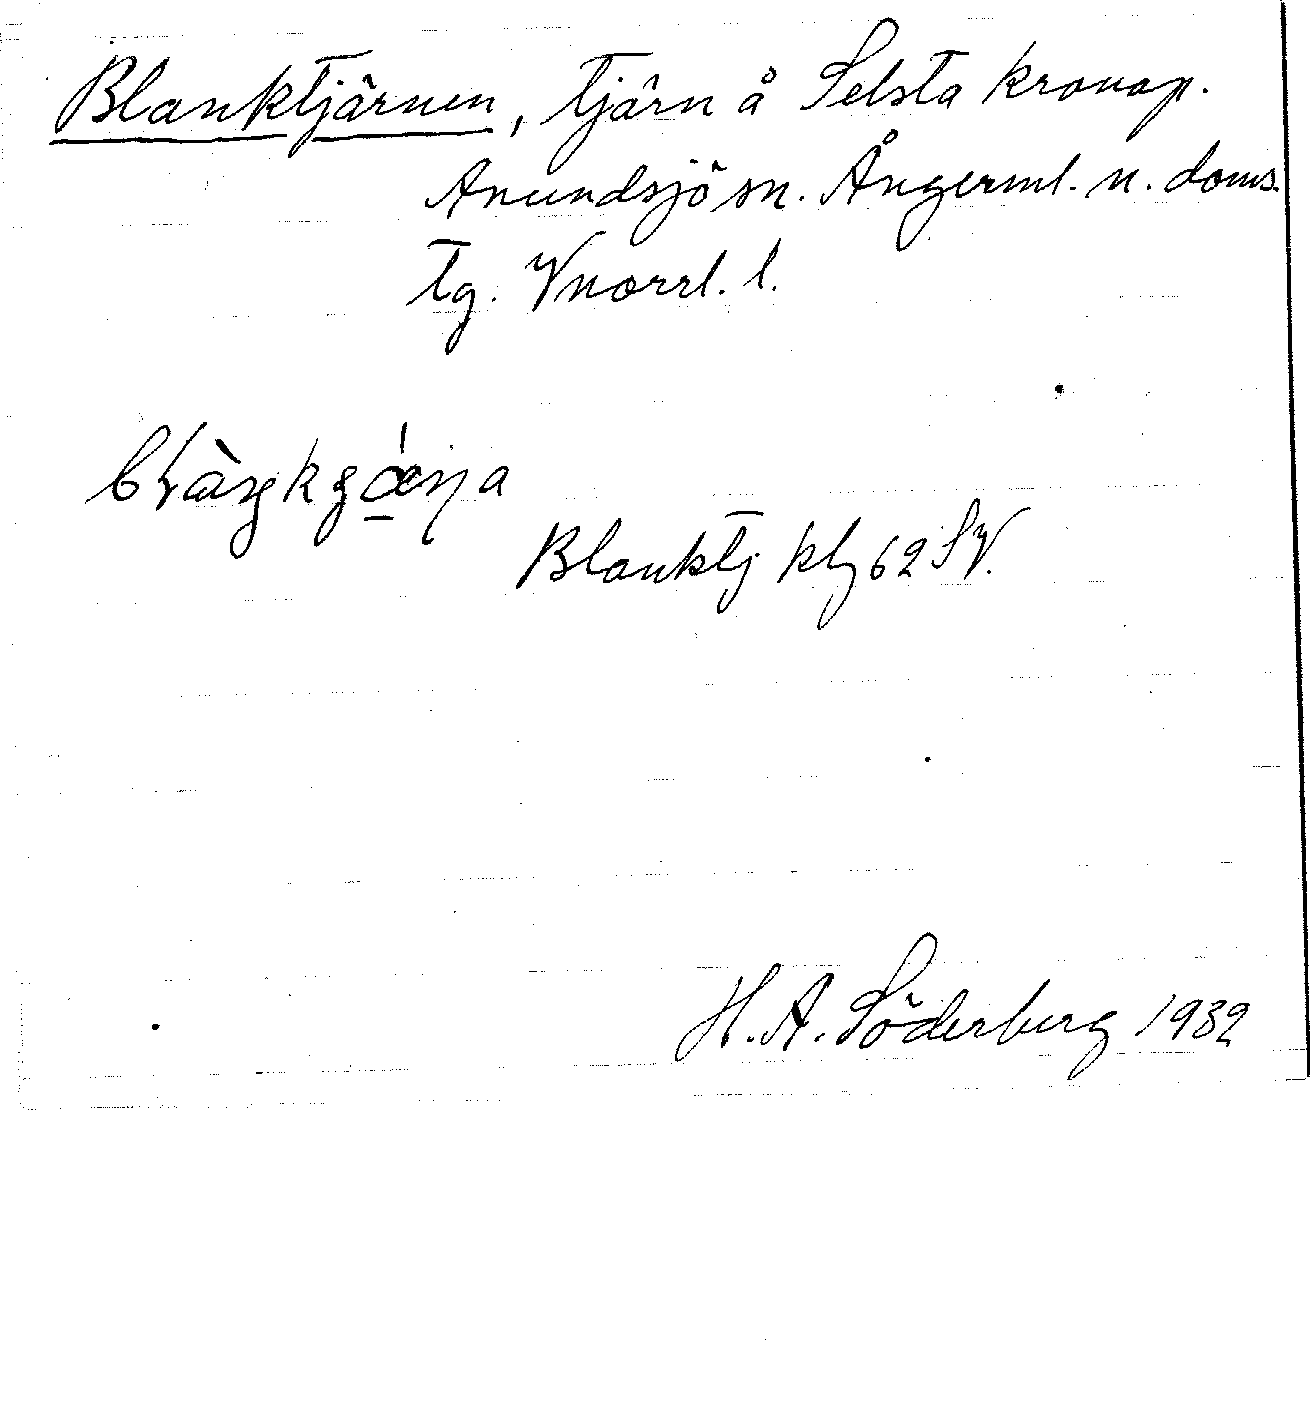 Blanktjärnen, tjärn å Selsta kronop.
Anundsjö sn. Ångerml. n. doms.
tg. Vnorrl. l.
Blanktj kbl 62 SV.
H. A. Söderberg 1932